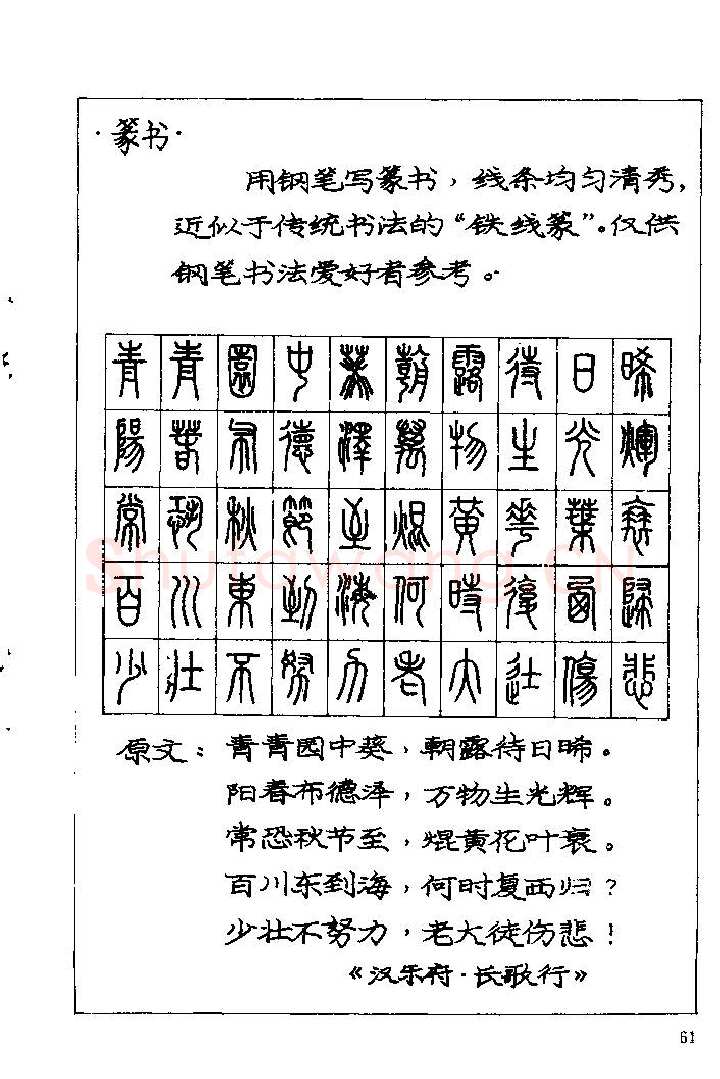 ·篆书·
用钢笔写篆书，线条均匀清秀，
近似于传统书法的“铁线篆”。仅供
钢笔书法爱好者参考。
青青園中葵朝露待日晞
陽春布德澤萬物生光輝
常恐秋節至焜黄華葉衰
百川東到海何時復西歸
少壯不努力老大徒傷悲
Shufawang.CN
原文：青青园中葵，朝露待日晞。
阳春布德泽，万物生光辉。
常恐秋节至，焜黄花叶衰。
百川东到海，何时复西归？
少壮不努力，老大徒伤悲！
《汉乐府·长歌行》
61